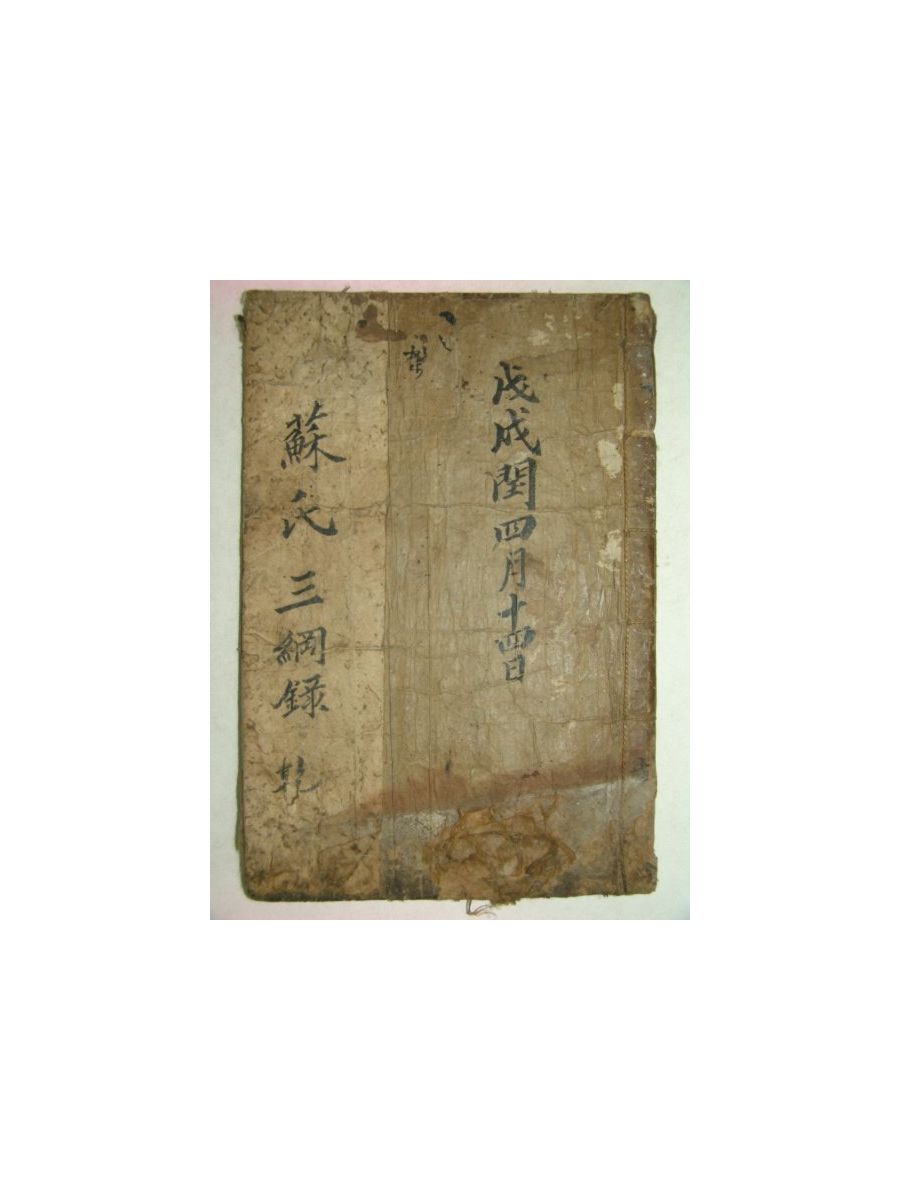 戊戌閏四月十四日
蘇氏三綱録 乾